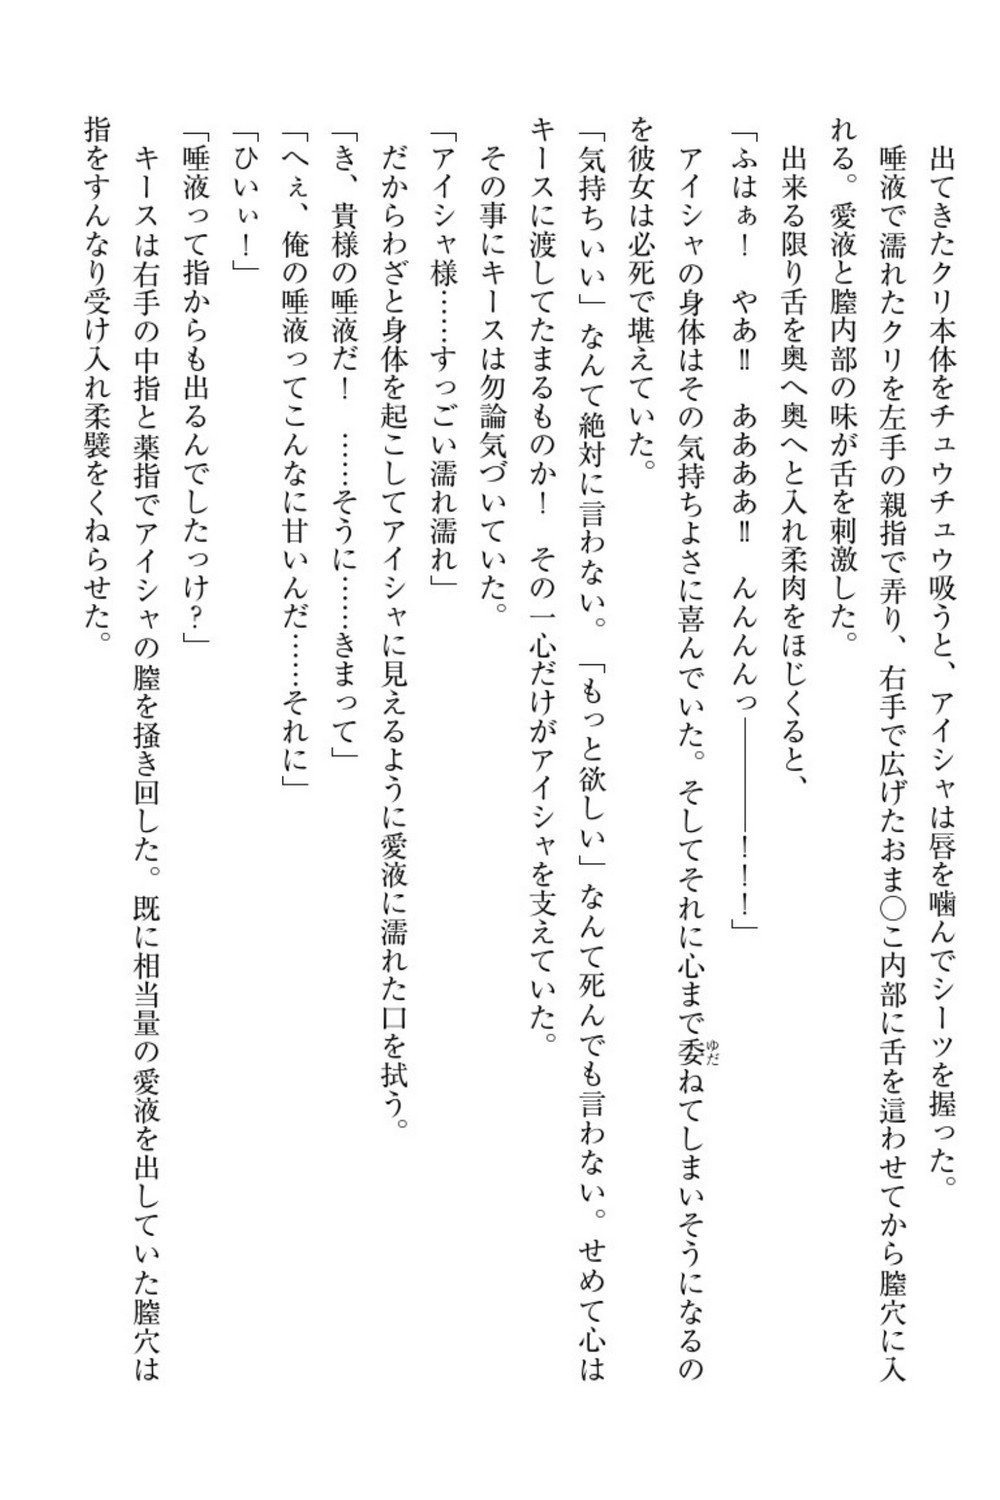 出てきたクリ本体をチュウチュウ吸うと、アイシャは唇を噛んでシーツを握った。
唾液で濡れたクリを左手の親指で弄り、右手で広げたおま〇こ内部に舌を這わせてから膣穴に入
れる。愛液と膣内部の味が舌を刺激した。
出来る限り舌を奥へ奥へと入れ柔肉をほじくると、
「ふはぁ！　やあ‼　ああああ‼　んんんんっ――――！！！」
アイシャの身体はその気持ちよさに喜んでいた。そしてそれに心まで委ねてしまいそうになるの
を彼女は必死で堪えていた。
「気持ちいい」なんて絶対に言わない。「もっと欲しい」なんて死んでも言わない。せめて心は
キースに渡してたまるものか！　その一心だけがアイシャを支えていた。
その事にキースは勿論気づいていた。
「アイシャ様……すっごい濡れ濡れ」
だからわざと身体を起こしてアイシャに見えるように愛液に濡れた口を拭う。
「き、貴様の唾液だ！　……そうに……きまって」
「へぇ、俺の唾液ってこんなに甘いんだ……それに」
「ひいぃ！」
「唾液って指からも出るんでしたっけ？」
キースは右手の中指と薬指でアイシャの膣を掻き回した。既に相当量の愛液を出していた膣穴は
指をすんなり受け入れ柔襞をくねらせた。